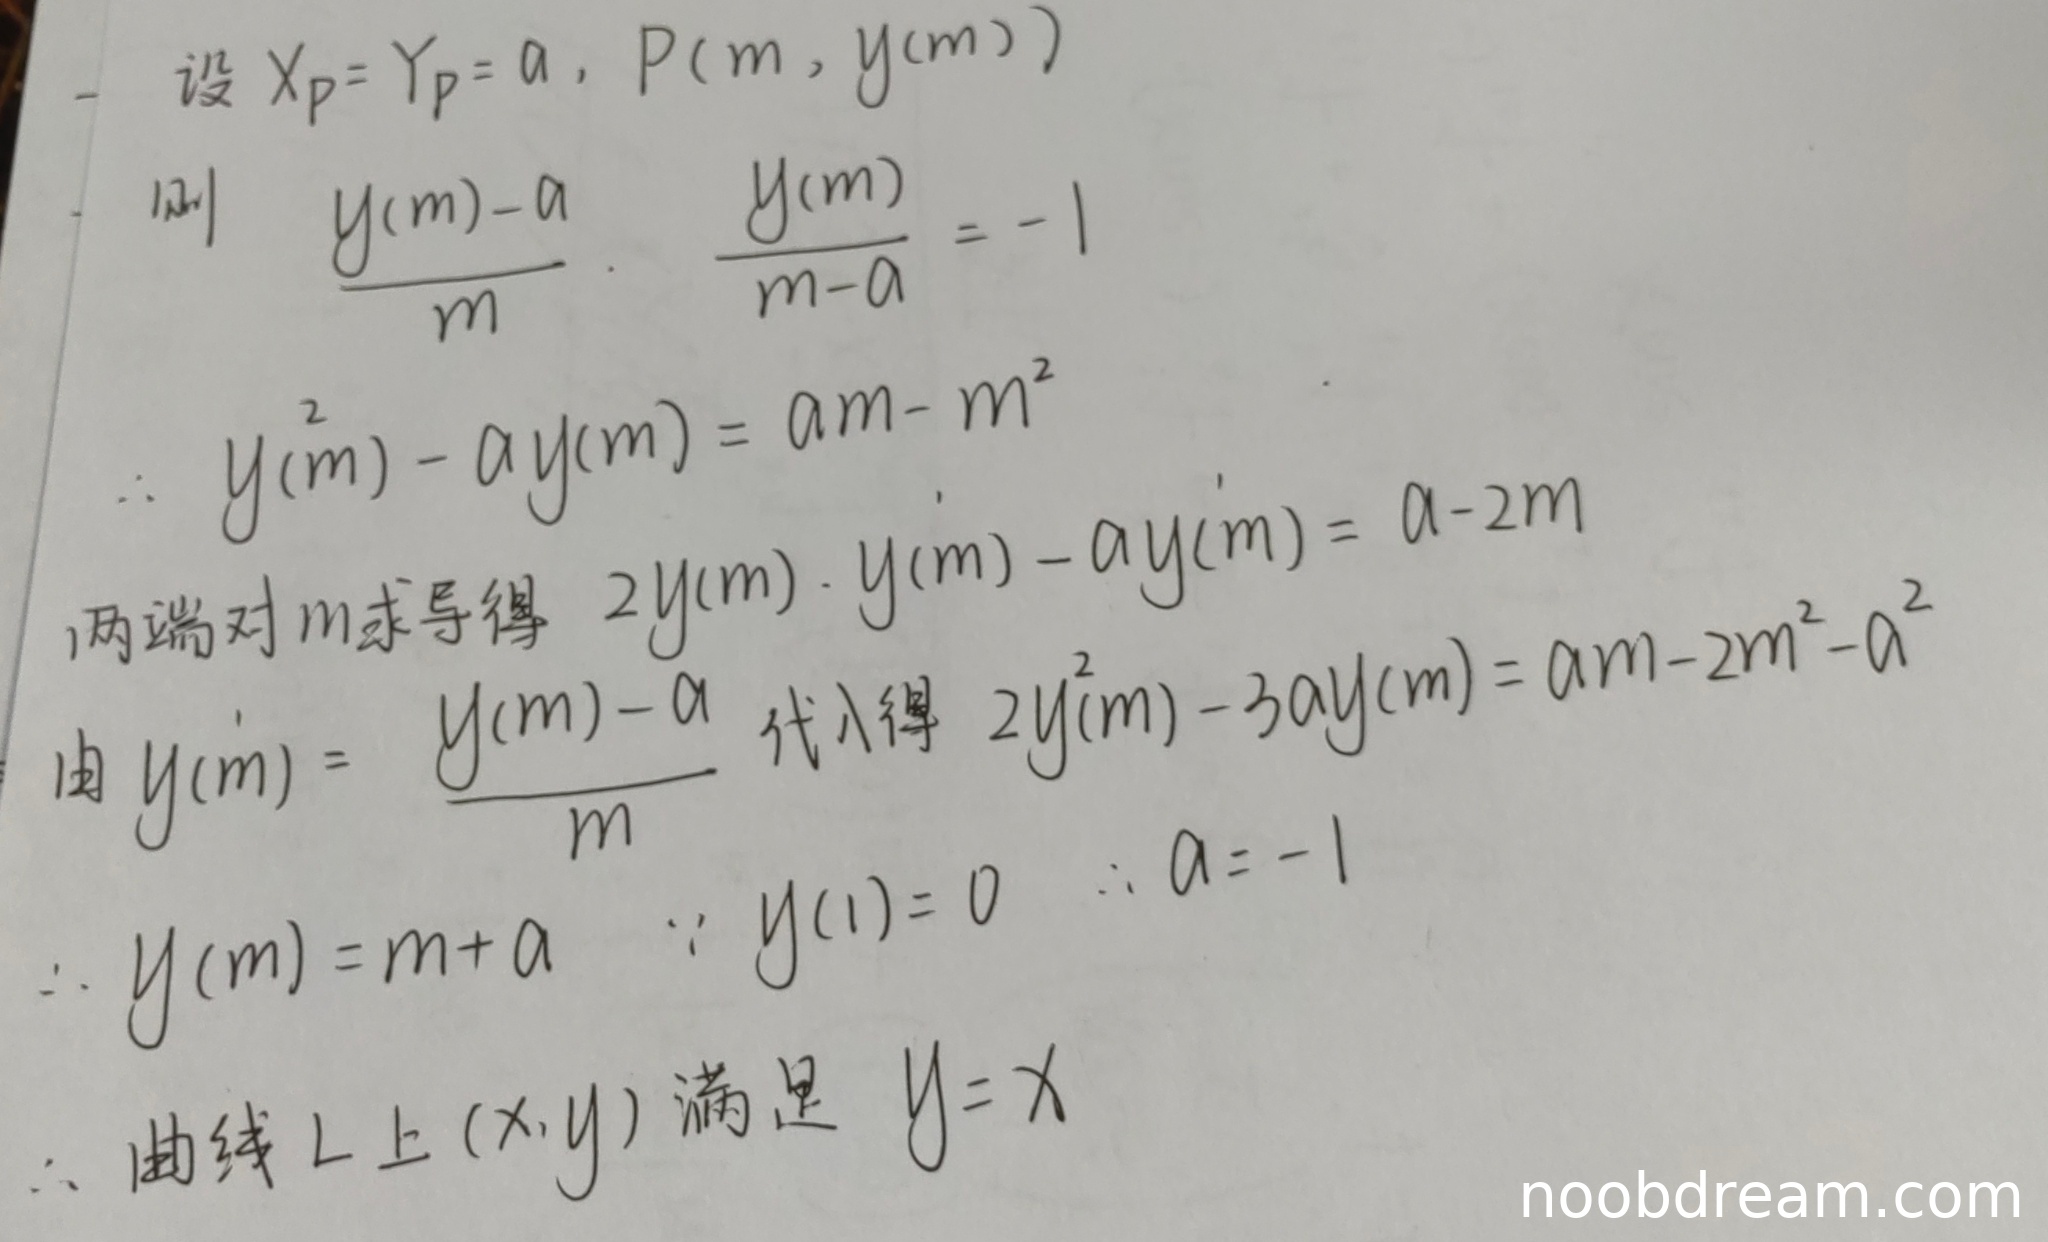 设 Xp = Yp = a, P(m, y(m))
则 (y(m)-a)/m · y(m)/(m-a) = -1
∴ y²(m) - ay(m) = am - m²
两端对m求导得 2y(m)·y'(m) - ay'(m) = a-2m
由 y'(m) = (y(m)-a)/m 代入得 2y²(m) - 3ay(m) = am-2m²-a²
∴ y(m) = m+a ∵ y(1) = 0 ∴ a = -1
∴ 曲线L上(x,y)满足 y = x
noobdream.com